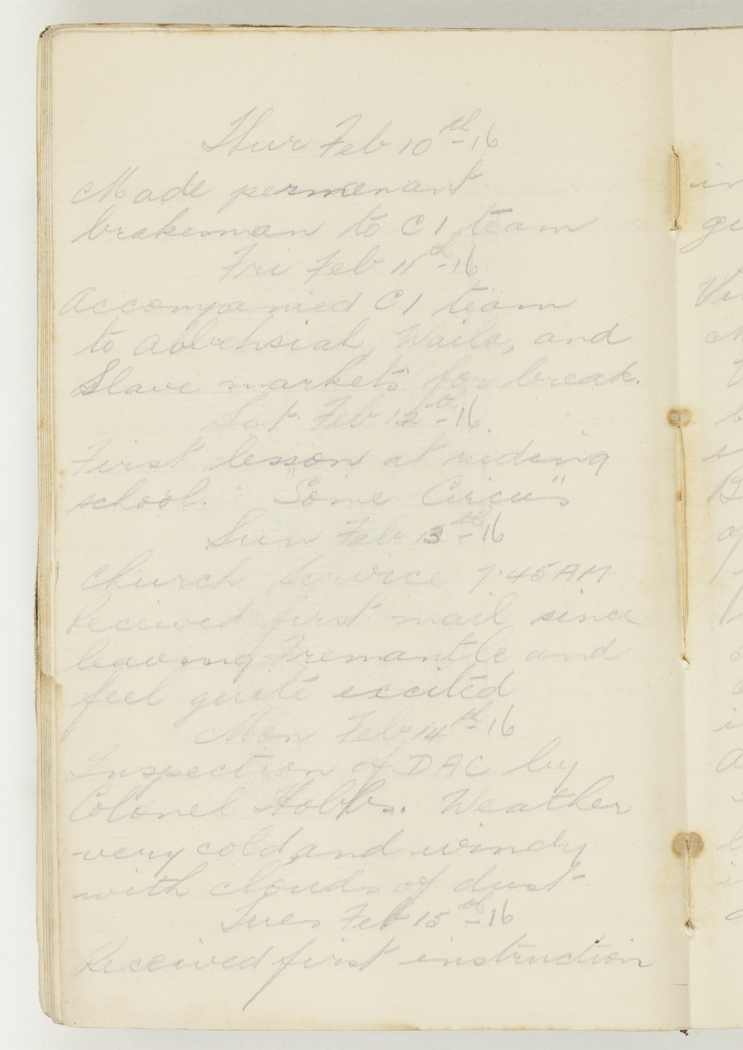 Thur Feb 10th-16
Made permanant
brakesman to C1 team
Fri Feb 11th-16
Accompanied C1 team
to Abbehsiah, Waila, and
Slave markets for break.
Sat Feb 12th-16.
First lesson at riding
school. "Some Circus"
Sun Feb 13th-16
Church Service 7.45AM
Received first mail since
leaving Fremantle and
feel quite excited
Mon Feb 14th-16
Inspection of DAC by
Colonel Hobbs. Weather
very cold and windy
with clouds of dust.
Tues Feb 15th-16
Received first instruction